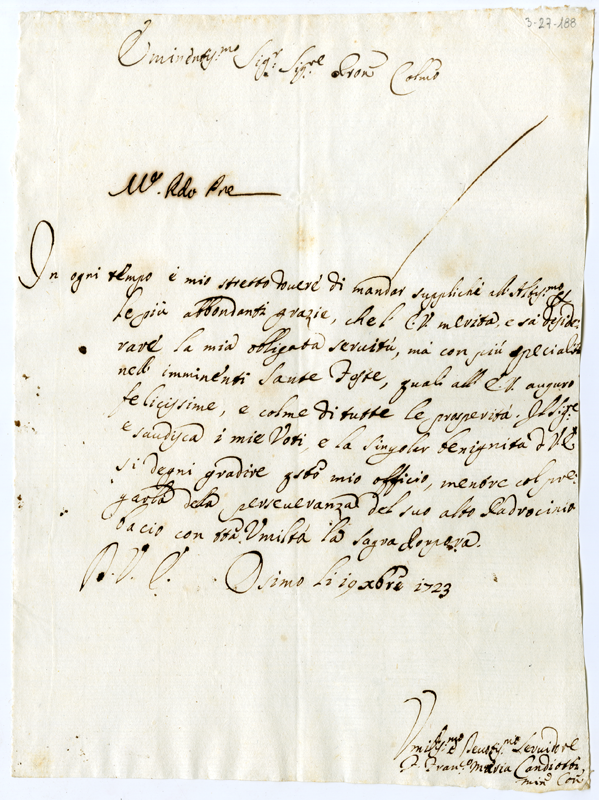 3-27-188
Eminentis.mo Sig.r Sig.re Pron Colmo
M.o Rdo Pre
In ogni tempo è mio stretto dovere di mandar suppliche all'Altis.mo
le più abbondanti grazie, che l' E.V. merita, e sà deside-
rare la mia obligata servitù, mà con più specialità
nell' imminenti Sante Feste, quali all' E.V. auguro
felicissime, e colme di tutte le prosperità. Il Sig.re
esaudisca i miei Voti, e la singolar benignità d' V.E.
si degni gradire qsto mio officio, mentre col pre-
garla della perseveranza del suo alto Padrocinio
bacio con tta Umiltà la sagra Porpora.
D. V. E. Osimo li 19 xbre 1723
Umilis.mo e Devotis.mo Servidore
F. Fran.co Maria Candiotti
Min. Con.